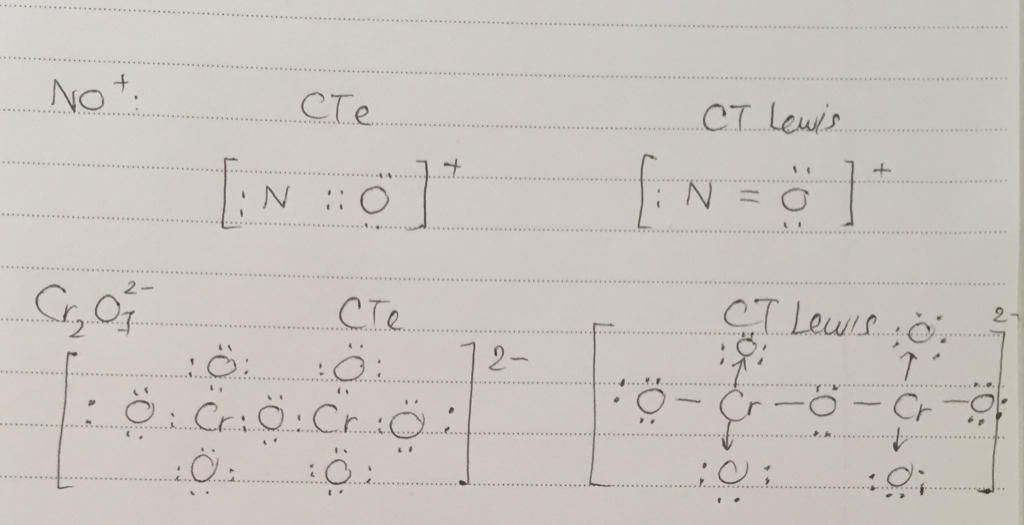 NO⁺: CTe CT Lewis
[:N ::Ö̤]⁺ [:N = Ö̤]⁺
Cr₂O₇²⁻ CTe CT Lewis
:Ö: :Ö: ]²⁻ :Ö: :Ö: ]²⁻
[:Ö̤:Cr:O:Cr:Ö̤:] [:Ö̤–Cr–Ö̤–Cr–Ö̤:]
:O̤: :O̤: :O̤: :O̤: